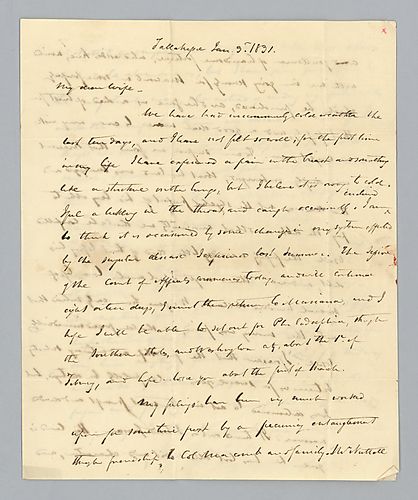 Tallahassee Jan. 3d. 1831.
My dear Wife.
We have had uncommonly cold weather the
last ten days, and I have not felt so well; for the first time
in my life I have experienced a pain in the breast and something
like a stricture on the lungs, but I believe it is owing to cold.
I feel a tickling in the throat, and cough occasionally. I am
inclined
to think it is occasioned by some change in my system, effected
by the singular disease I experienced last summer. The session
of the Court of Appeals commences today, and will continue
eight or ten days, I must then return to Marianna, and I
hope I will be able to set out for Philadelphia, through
the Southern States, and Washington city, about the 1st of
Feby, and hope to see you about the first of March.
My feelings have been very much worked
upon for some time past by a pecuniary entanglement
through friendship, to Col. and family.